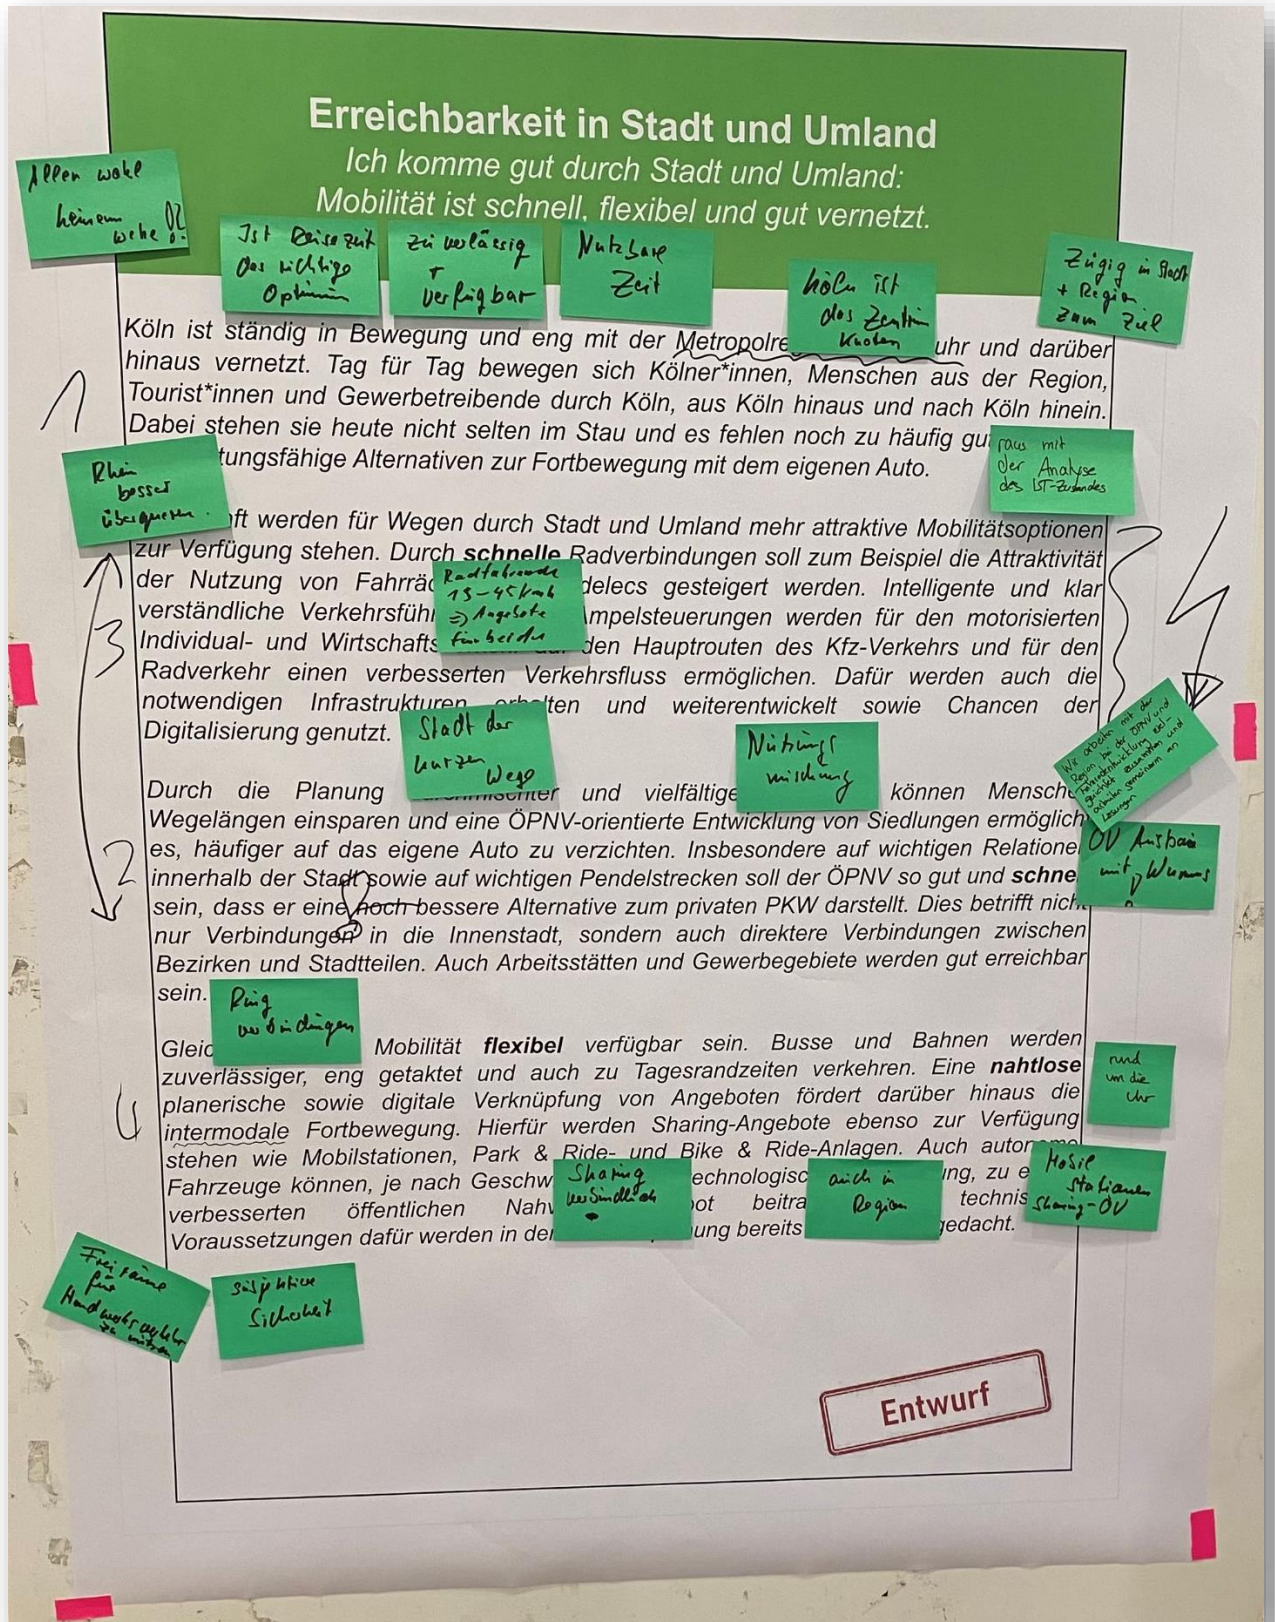 Erreichbarkeit in Stadt und Umland
Ich komme gut durch Stadt und Umland:
Mobilität ist schnell, flexibel und gut vernetzt.
Allen wohl
keinem
wehe !?
Ist Reisezeit
das richtige
Optimum
zuverlässig
+
verfügbar
Nutzbare
Zeit
Köln ist
das Zentrum
Knoten
Zügig in Stadt
+ Region
zum Ziel
Köln ist ständig in Bewegung und eng mit der Metropolre uhr und darüber
hinaus vernetzt. Tag für Tag bewegen sich Kölner*innen, Menschen aus der Region,
Tourist*innen und Gewerbetreibende durch Köln, aus Köln hinaus und nach Köln hinein.
Dabei stehen sie heute nicht selten im Stau und es fehlen noch zu häufig gu
tungsfähige Alternativen zur Fortbewegung mit dem eigenen Auto.
1
raus mit
der Analyse
des IST-Zustandes
Rhein
besser
überqueren.
ft werden für Wegen durch Stadt und Umland mehr attraktive Mobilitätsoptionen
zur Verfügung stehen. Durch schnelle Radverbindungen soll zum Beispiel die Attraktivität
der Nutzung von Fahrräd delecs gesteigert werden. Intelligente und klar
verständliche Verkehrsführ mpelsteuerungen werden für den motorisierten
Individual- und Wirtschafts den Hauptrouten des Kfz-Verkehrs und für den
Radverkehr einen verbesserten Verkehrsfluss ermöglichen. Dafür werden auch die
notwendigen Infrastrukturen erhalten und weiterentwickelt sowie Chancen der
Digitalisierung genutzt.
3
Radfahrende
15-45 km/h
=> Angebote
für beide
Stadt der
kurzen
Wege
Nutzungs
mischung
Wir arbeiten mit der
Region bei der ÖPNV und
zusammen und
arbeiten gemeinsam an
Lösungen
Durch die Planung und vielfältige können Mensche
Wegelängen einsparen und eine ÖPNV-orientierte Entwicklung von Siedlungen ermöglich
es, häufiger auf das eigene Auto zu verzichten. Insbesondere auf wichtigen Relatione
innerhalb der Stadt sowie auf wichtigen Pendelstrecken soll der ÖPNV so gut und schne
sein, dass er eine noch bessere Alternative zum privaten PKW darstellt. Dies betrifft nicht
nur Verbindungen in die Innenstadt, sondern auch direktere Verbindungen zwischen
Bezirken und Stadtteilen. Auch Arbeitsstätten und Gewerbegebiete werden gut erreichbar
sein.
2
ÖV Ausbau
mit Wumms
Ring
verbindungen
Gleic Mobilität flexibel verfügbar sein. Busse und Bahnen werden
zuverlässiger, eng getaktet und auch zu Tagesrandzeiten verkehren. Eine nahtlose
planerische sowie digitale Verknüpfung von Angeboten fördert darüber hinaus die
intermodale Fortbewegung. Hierfür werden Sharing-Angebote ebenso zur Verfügung
stehen wie Mobilstationen, Park & Ride- und Bike & Ride-Anlagen. Auch autonome
Fahrzeuge können, je nach Geschw echnologisc ng, zu e
verbesserten öffentlichen Nahv ot beitra technis
Voraussetzungen dafür werden in der ung bereits gedacht.
4
rund
um die
Uhr
Sharing
verbindlich
auch in
Region
Mobil
Stationen
Sharing-ÖV
Freiräume
für
Handwerksverkehr
zu nutzen
subjektive
Sicherheit
Entwurf